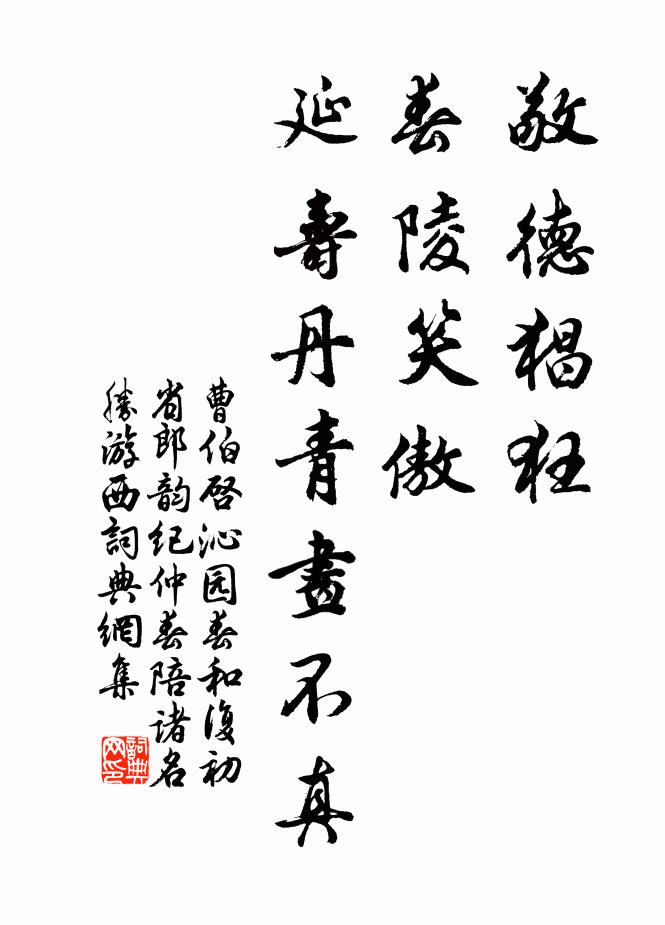 敬德猖狂
春陵笑傲
延壽丹青畫不真
曹伯啓沁园春和復初
省郎韵纪仲春陪诸名
勝游西詞典網集
詞典
网印